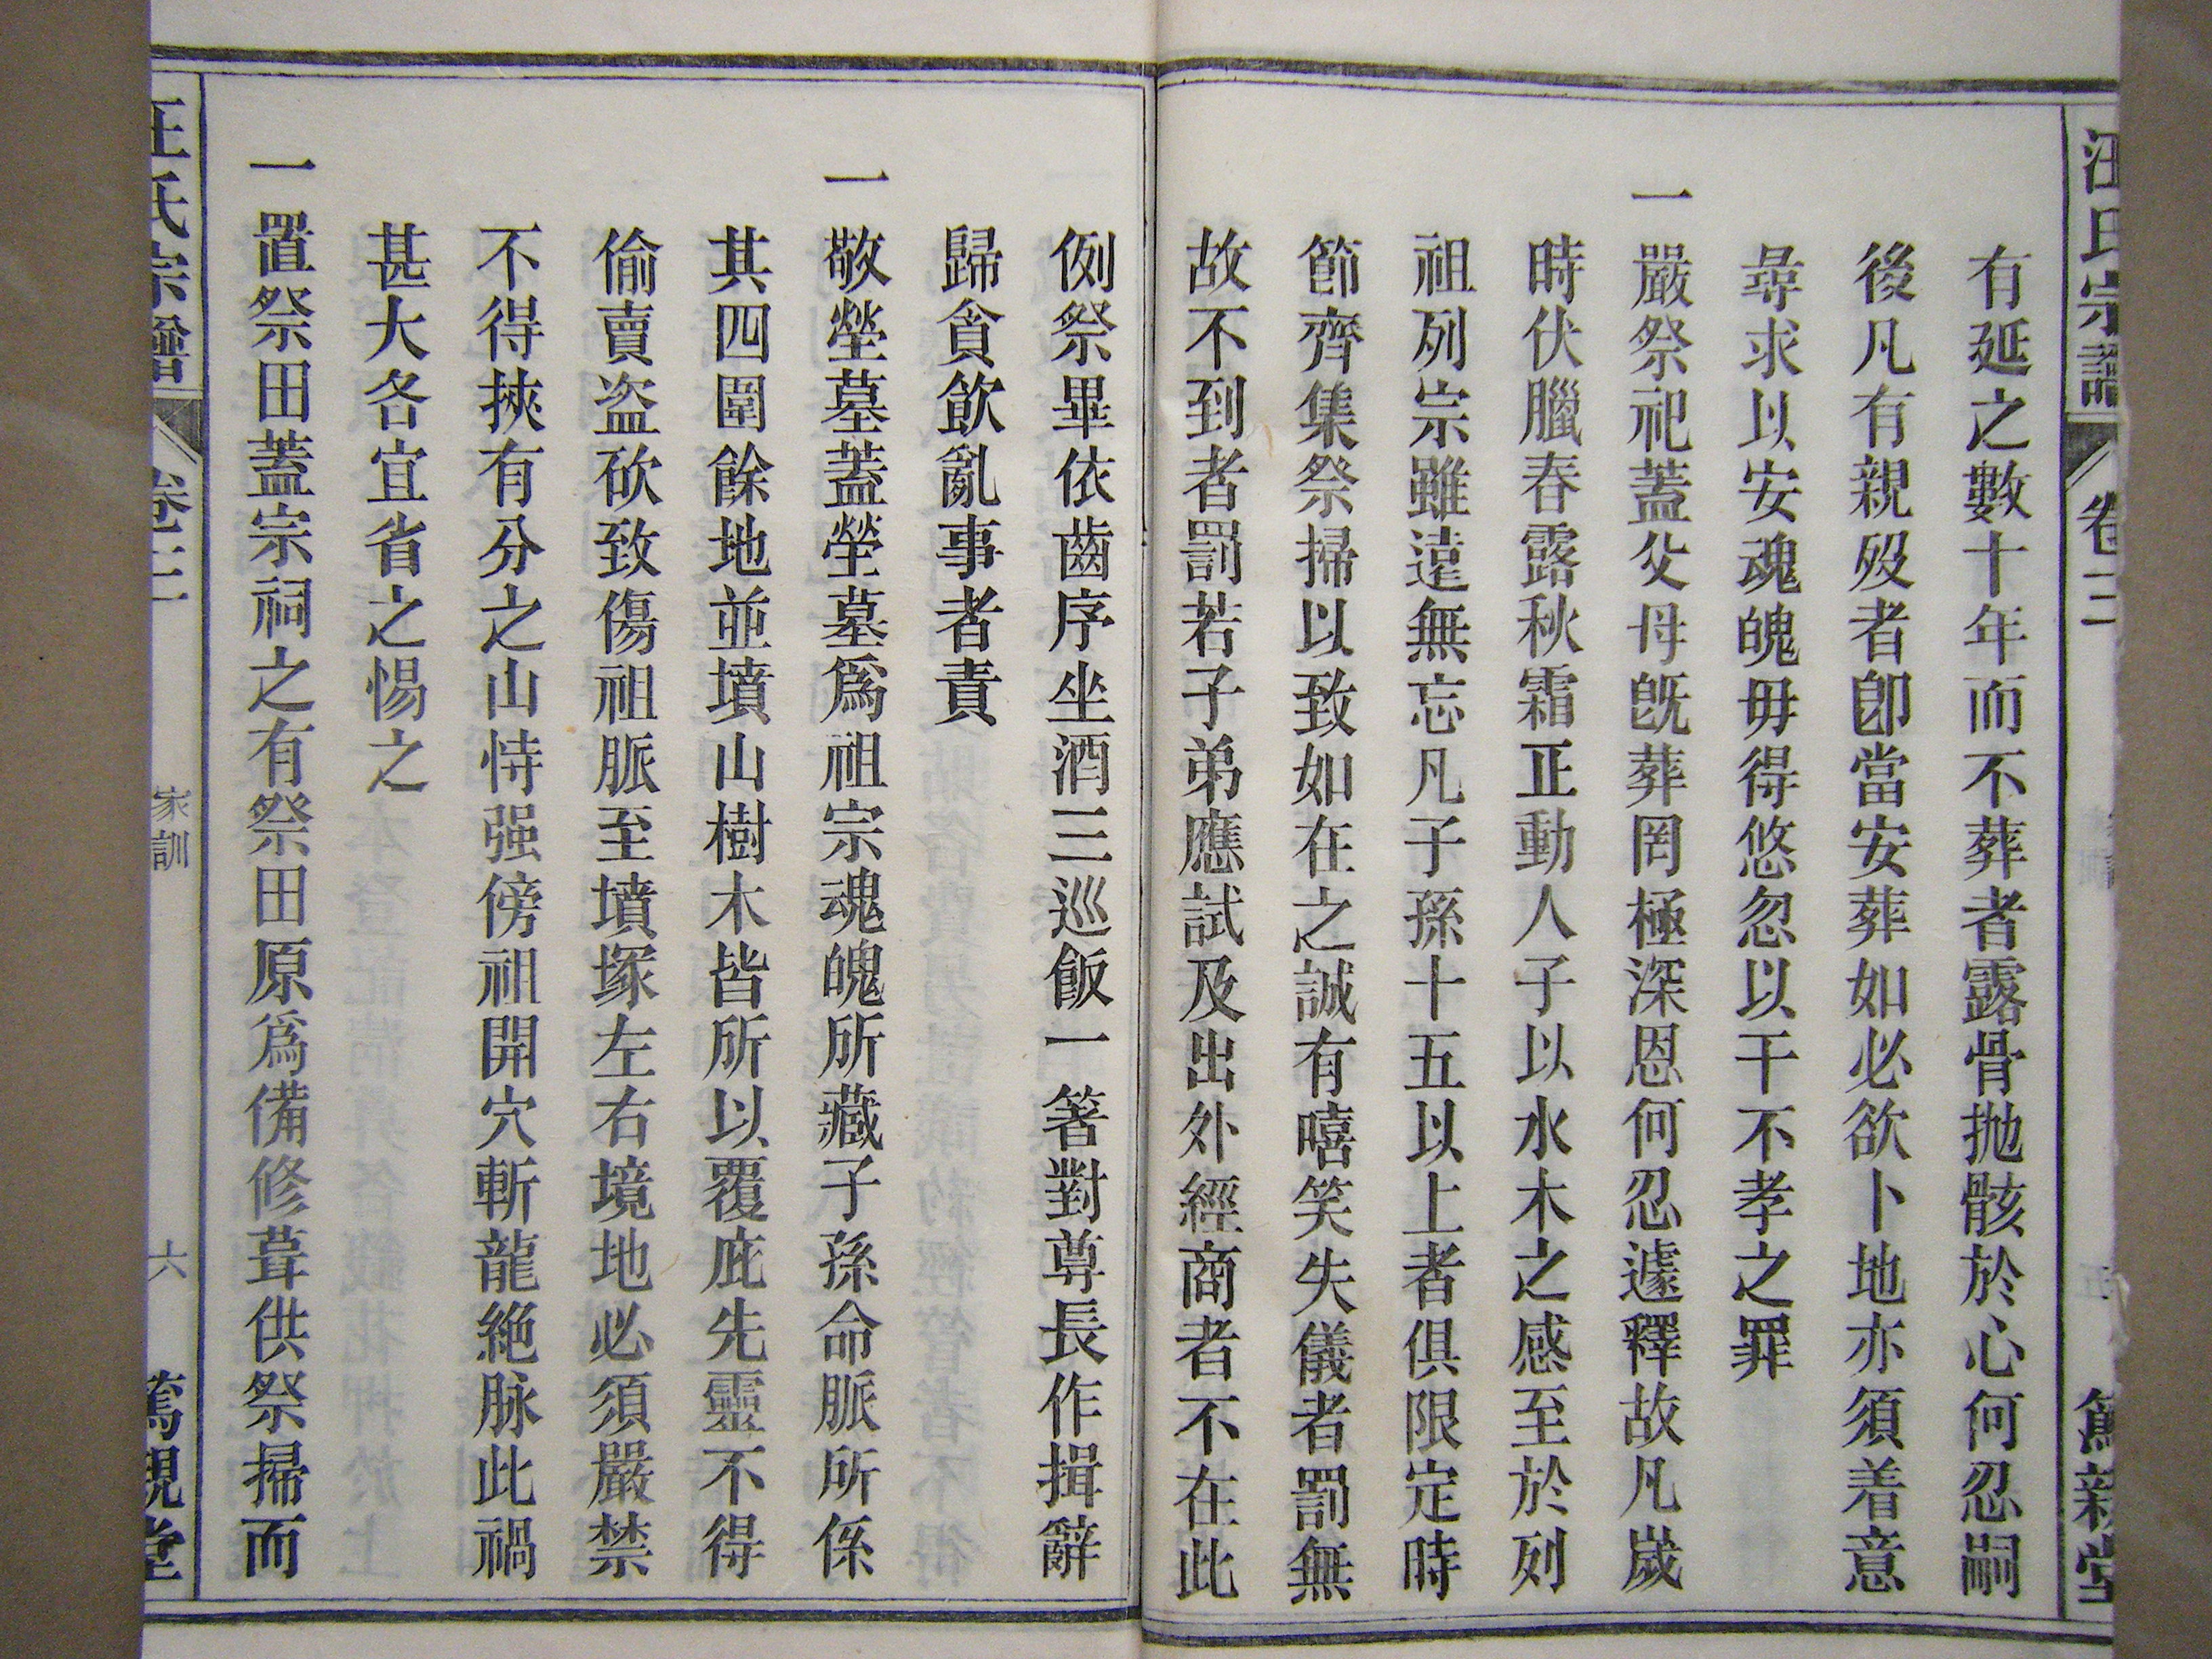 汪氏宗譜 卷三 篤親堂
有延之數十年而不葬者露骨拋骸於心何忍嗣
後凡有親歿者卽當安葬如必欲卜地亦須着意
尋求以安魂魄毋得悠忽以干不孝之罪
一嚴祭祀蓋父母旣葬罔極深恩何忍遽釋故凡歲
時伏臘春露秋霜正動人子以水木之感至於列
祖列宗雖遠無忘凡子孫十五以上者俱限定時
節齊集祭掃以致如在之誠有嘻笑失儀者罰無
故不到者罰若子弟應試及出外經商者不在此
例祭畢依齒序坐酒三巡飯一箸對尊長作揖辭
歸貪飮亂事者責
一敬塋墓蓋塋墓爲祖宗魂魄所藏子孫命脈所係
其四圍餘地並墳山樹木皆所以覆庇先靈不得
偷賣盜砍致傷祖脈至墳塚左右境地必須嚴禁
不得挾有分之山恃强傍祖開穴斬龍絶脉此禍
甚大各宜省之惕之
一置祭田蓋宗祠之有祭田原爲備修葺供祭掃而
汪氏宗譜 卷三 家訓 六 篤親堂